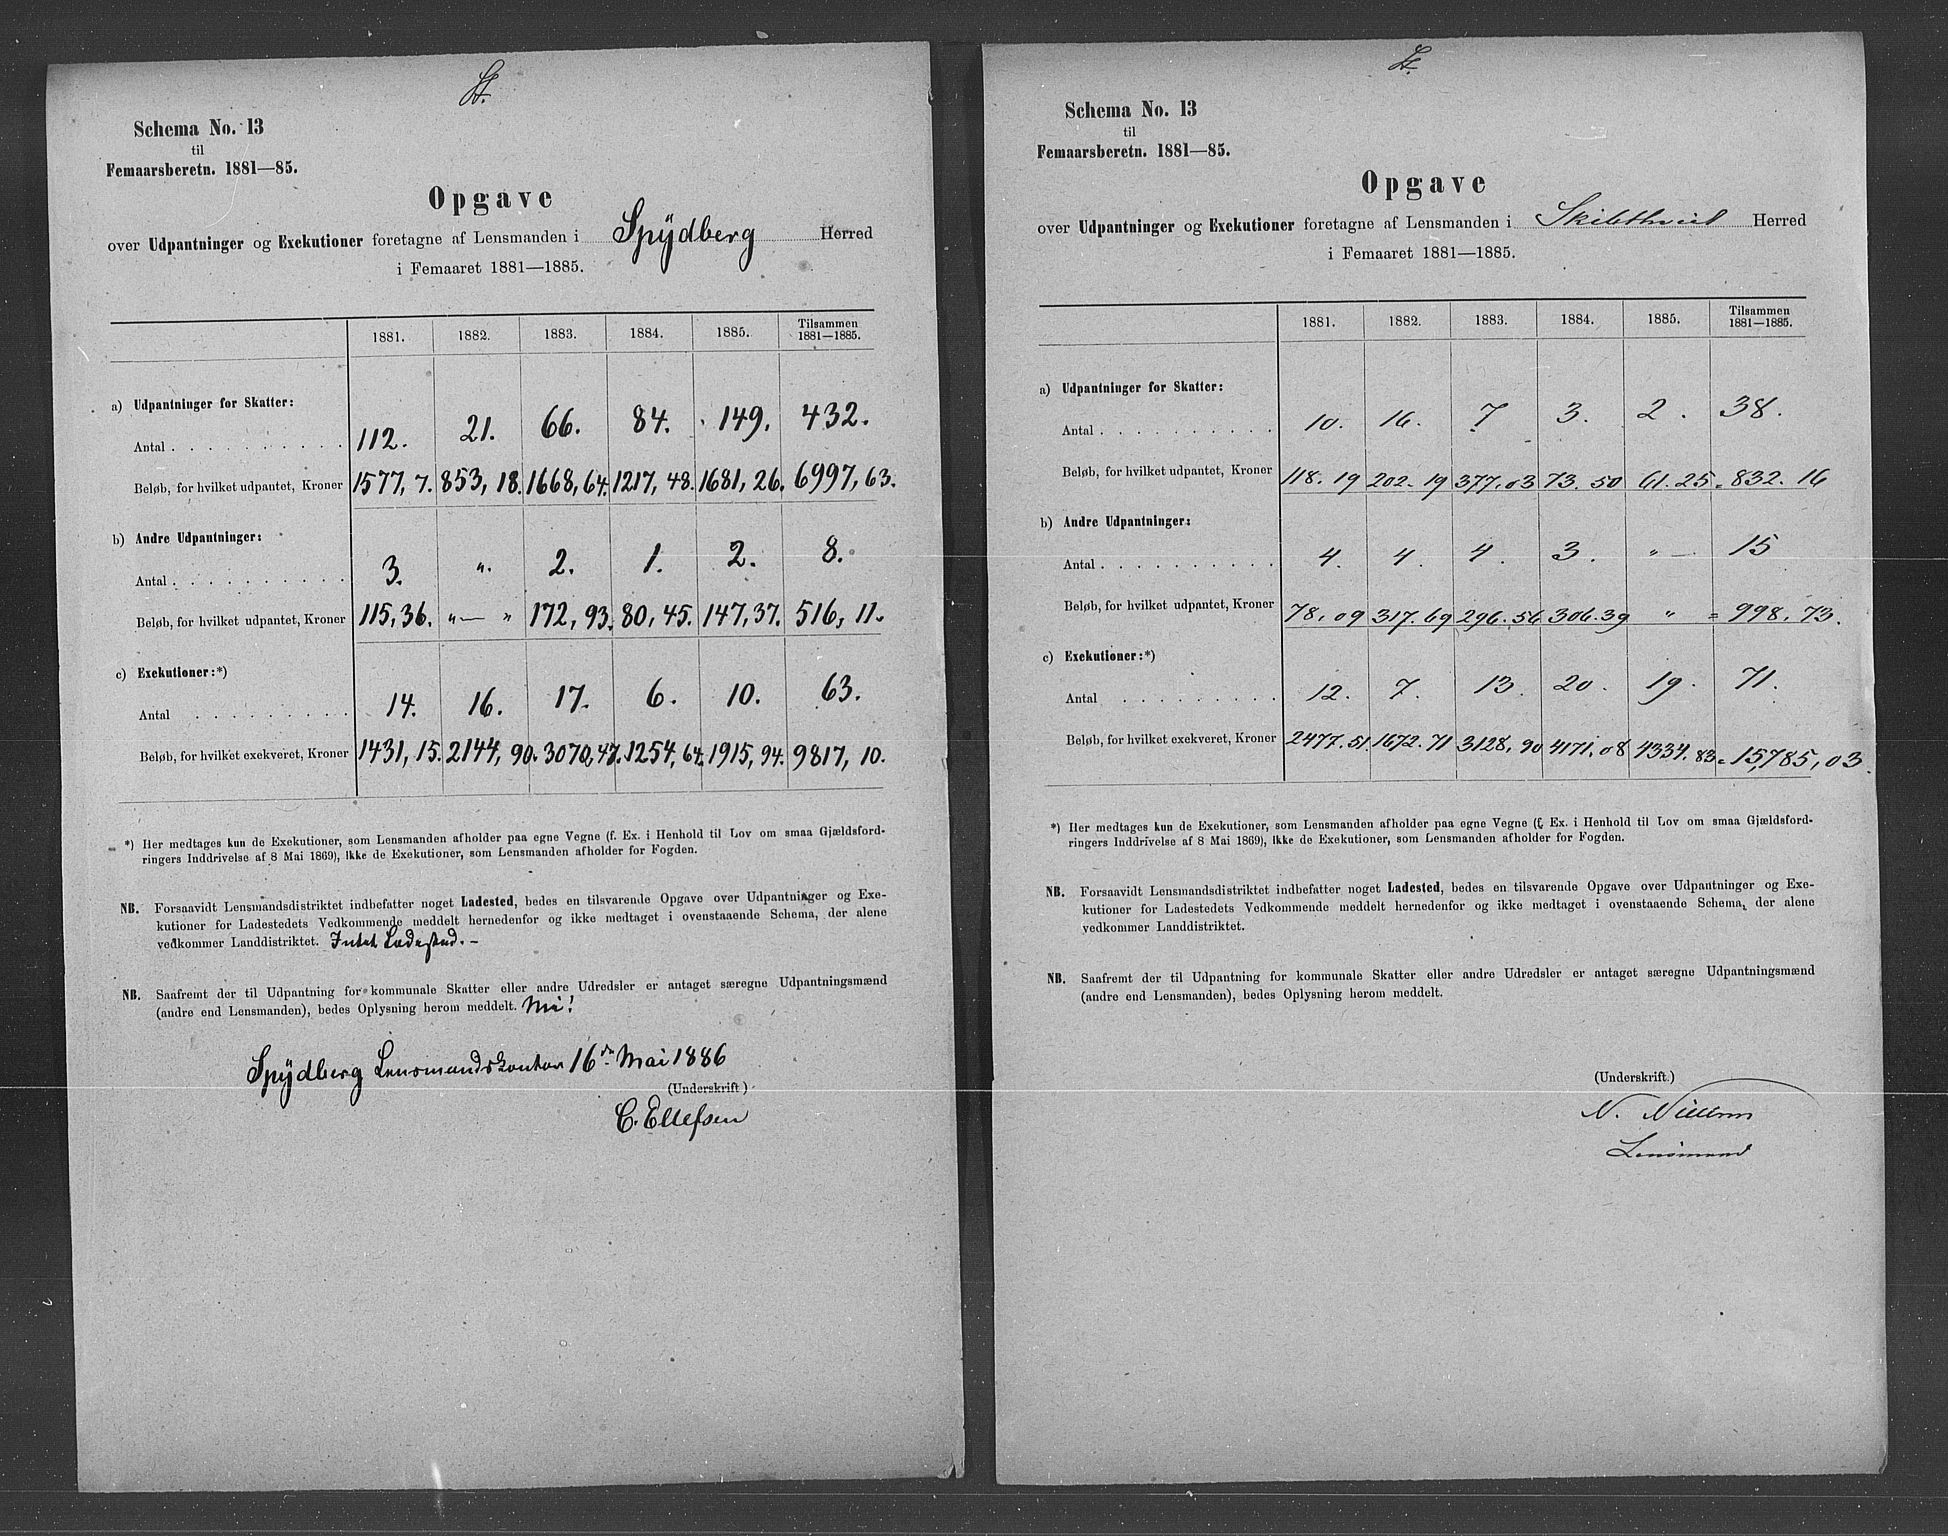 St.
Schema No. 13
til
Femaarsberetn. 1881—85.
Opgave
over Udpantninger og Exekutioner foretagne af Lensmanden i Spydberg Herred
i Femaaret 1881—1885.
1881. 1882. 1883. 1884. 1885. Tilsammen 1881—1885.
a) Udpantninger for Skatter:
Antal . . . . . . . . . . 112. 21. 66. 84. 149. 432.
Beløb, for hvilket udpantet, Kroner 1577, 7. 853, 18. 1668, 64. 1217, 48. 1681, 26. 6997, 63.
b) Andre Udpantninger:
Antal . . . . . . . . . . 3. „. 2. 1. 2. 8.
Beløb, for hvilket udpantet, Kroner 115, 36. „— „ 172, 93. 80, 45. 147, 37. 516, 11.
c) Exekutioner:*)
Antal . . . . . . . . . 14. 16. 17. 6. 10. 63.
Beløb, for hvilket exekveret, Kroner 1431, 15. 2144, 90. 3070, 47. 1254, 64. 1915, 94. 9817, 10.
*) Her medtages kun de Exekutioner, som Lensmanden afholder paa egne Vegne (f. Ex. i Henhold til Lov om smaa Gjældsford-
ringers Inddrivelse af 8 Mai 1869), ikke de Exekutioner, som Lensmanden afholder for Fogden.
NB. Forsaavidt Lensmandsdistriktet indbefatter noget Ladested, bedes en tilsvarende Opgave over Udpantninger og Exe-
kutioner for Ladestedets Vedkommende meddelt hernedenfor og ikke medtaget i ovenstaaende Schema, der alene
vedkommer Landdistriktet. Intet Ladested. -
NB. Saafremt der til Udpantning for kommunale Skatter eller andre Udredsler er antaget særegne Udpantningsmænd
(andre end Lensmanden), bedes Oplysning herom meddelt.
Spydberg Lensmandskontor 16de Mai 1886
(Underskrift)
C. Ellefsen
St.
Schema No. 13
til
Femaarsberetn. 1881—85.
Opgave
over Udpantninger og Exekutioner foretagne af Lensmanden i Skibthvet Herred
i Femaaret 1881—1885.
1881. 1882. 1883. 1884. 1885. Tilsammen 1881—1885.
a) Udpantninger for Skatter:
Antal . . . . . . . . . . 10. 16. 7 3. 2. 38.
Beløb, for hvilket udpantet, Kroner 118. 19 202. 19 377. 03 73. 50 61. 25 = 832. 16
b) Andre Udpantninger:
Antal . . . . . . . . . . 4. 4. 4. 3. „ — 15
Beløb, for hvilket udpantet, Kroner 78. 09 317. 69 296. 56 306. 39 „ = 998. 73.
c) Exekutioner:*)
Antal . . . . . . . . . 12. 7. 13. 20. 19. 71.
Beløb, for hvilket exekveret, Kroner 2477. 51 1672. 71 3128, 90 4171. 08 4334. 83 = 15,785, 03.
*) Her medtages kun de Exekutioner, som Lensmanden afholder paa egne Vegne (f. Ex. i Henhold til Lov om smaa Gjældsford-
ringers Inddrivelse af 8 Mai 1869), ikke de Exekutioner, som Lensmanden afholder for Fogden.
NB. Forsaavidt Lensmandsdistriktet indbefatter noget Ladested, bedes en tilsvarende Opgave over Udpantninger og Exe-
kutioner for Ladestedets Vedkommende meddelt hernedenfor og ikke medtaget i ovenstaaende Schema, der alene
vedkommer Landdistriktet.
NB. Saafremt der til Udpantning for kommunale Skatter eller andre Udredsler er antaget særegne Udpantningsmænd
(andre end Lensmanden), bedes Oplysning herom meddelt.
(Underskrift.)
N. Nielsen
Lensmand